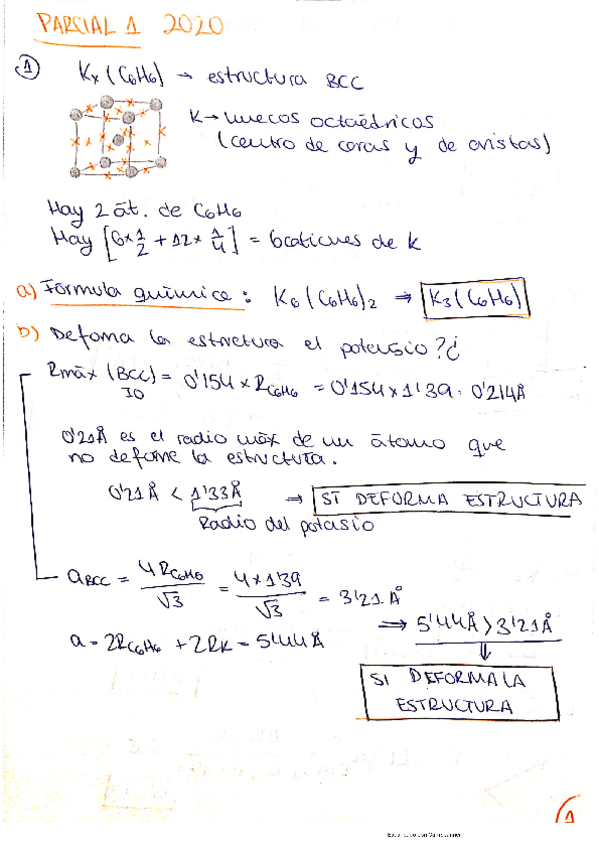 PARCIAL 1 2020
① Kx (C6H6) → estructura BCC
K → huecos octaédricos
(centro de caras y de aristas)
Hay 2 át. de C6H6
Hay [6 × 1/2 + 12 × 1/4] = 6 cationes de K
a) Fórmula química : K6 (C6H6)2 ⇒ K3 (C6H6)
b) Defoma la estructura el potasio?¿
Rmáx (BCC) = 0'154 × RC6H6 = 0'154 × 1'39 = 0'214Å
IO
0'21Å es el radio máx de un átomo que
no deforme la estructura.
0'21 Å < 1'33Å → SI DEFORMA ESTRUCTURA
Radio del potasio
aBCC = 4RC6H6/√3 = 4 × 1'39/√3 = 3'21 Å
⇒ 5'44Å > 3'21Å
a = 2RC6H6 + 2RK = 5'44Å
SI DEFORMA LA
ESTRUCTURA
1